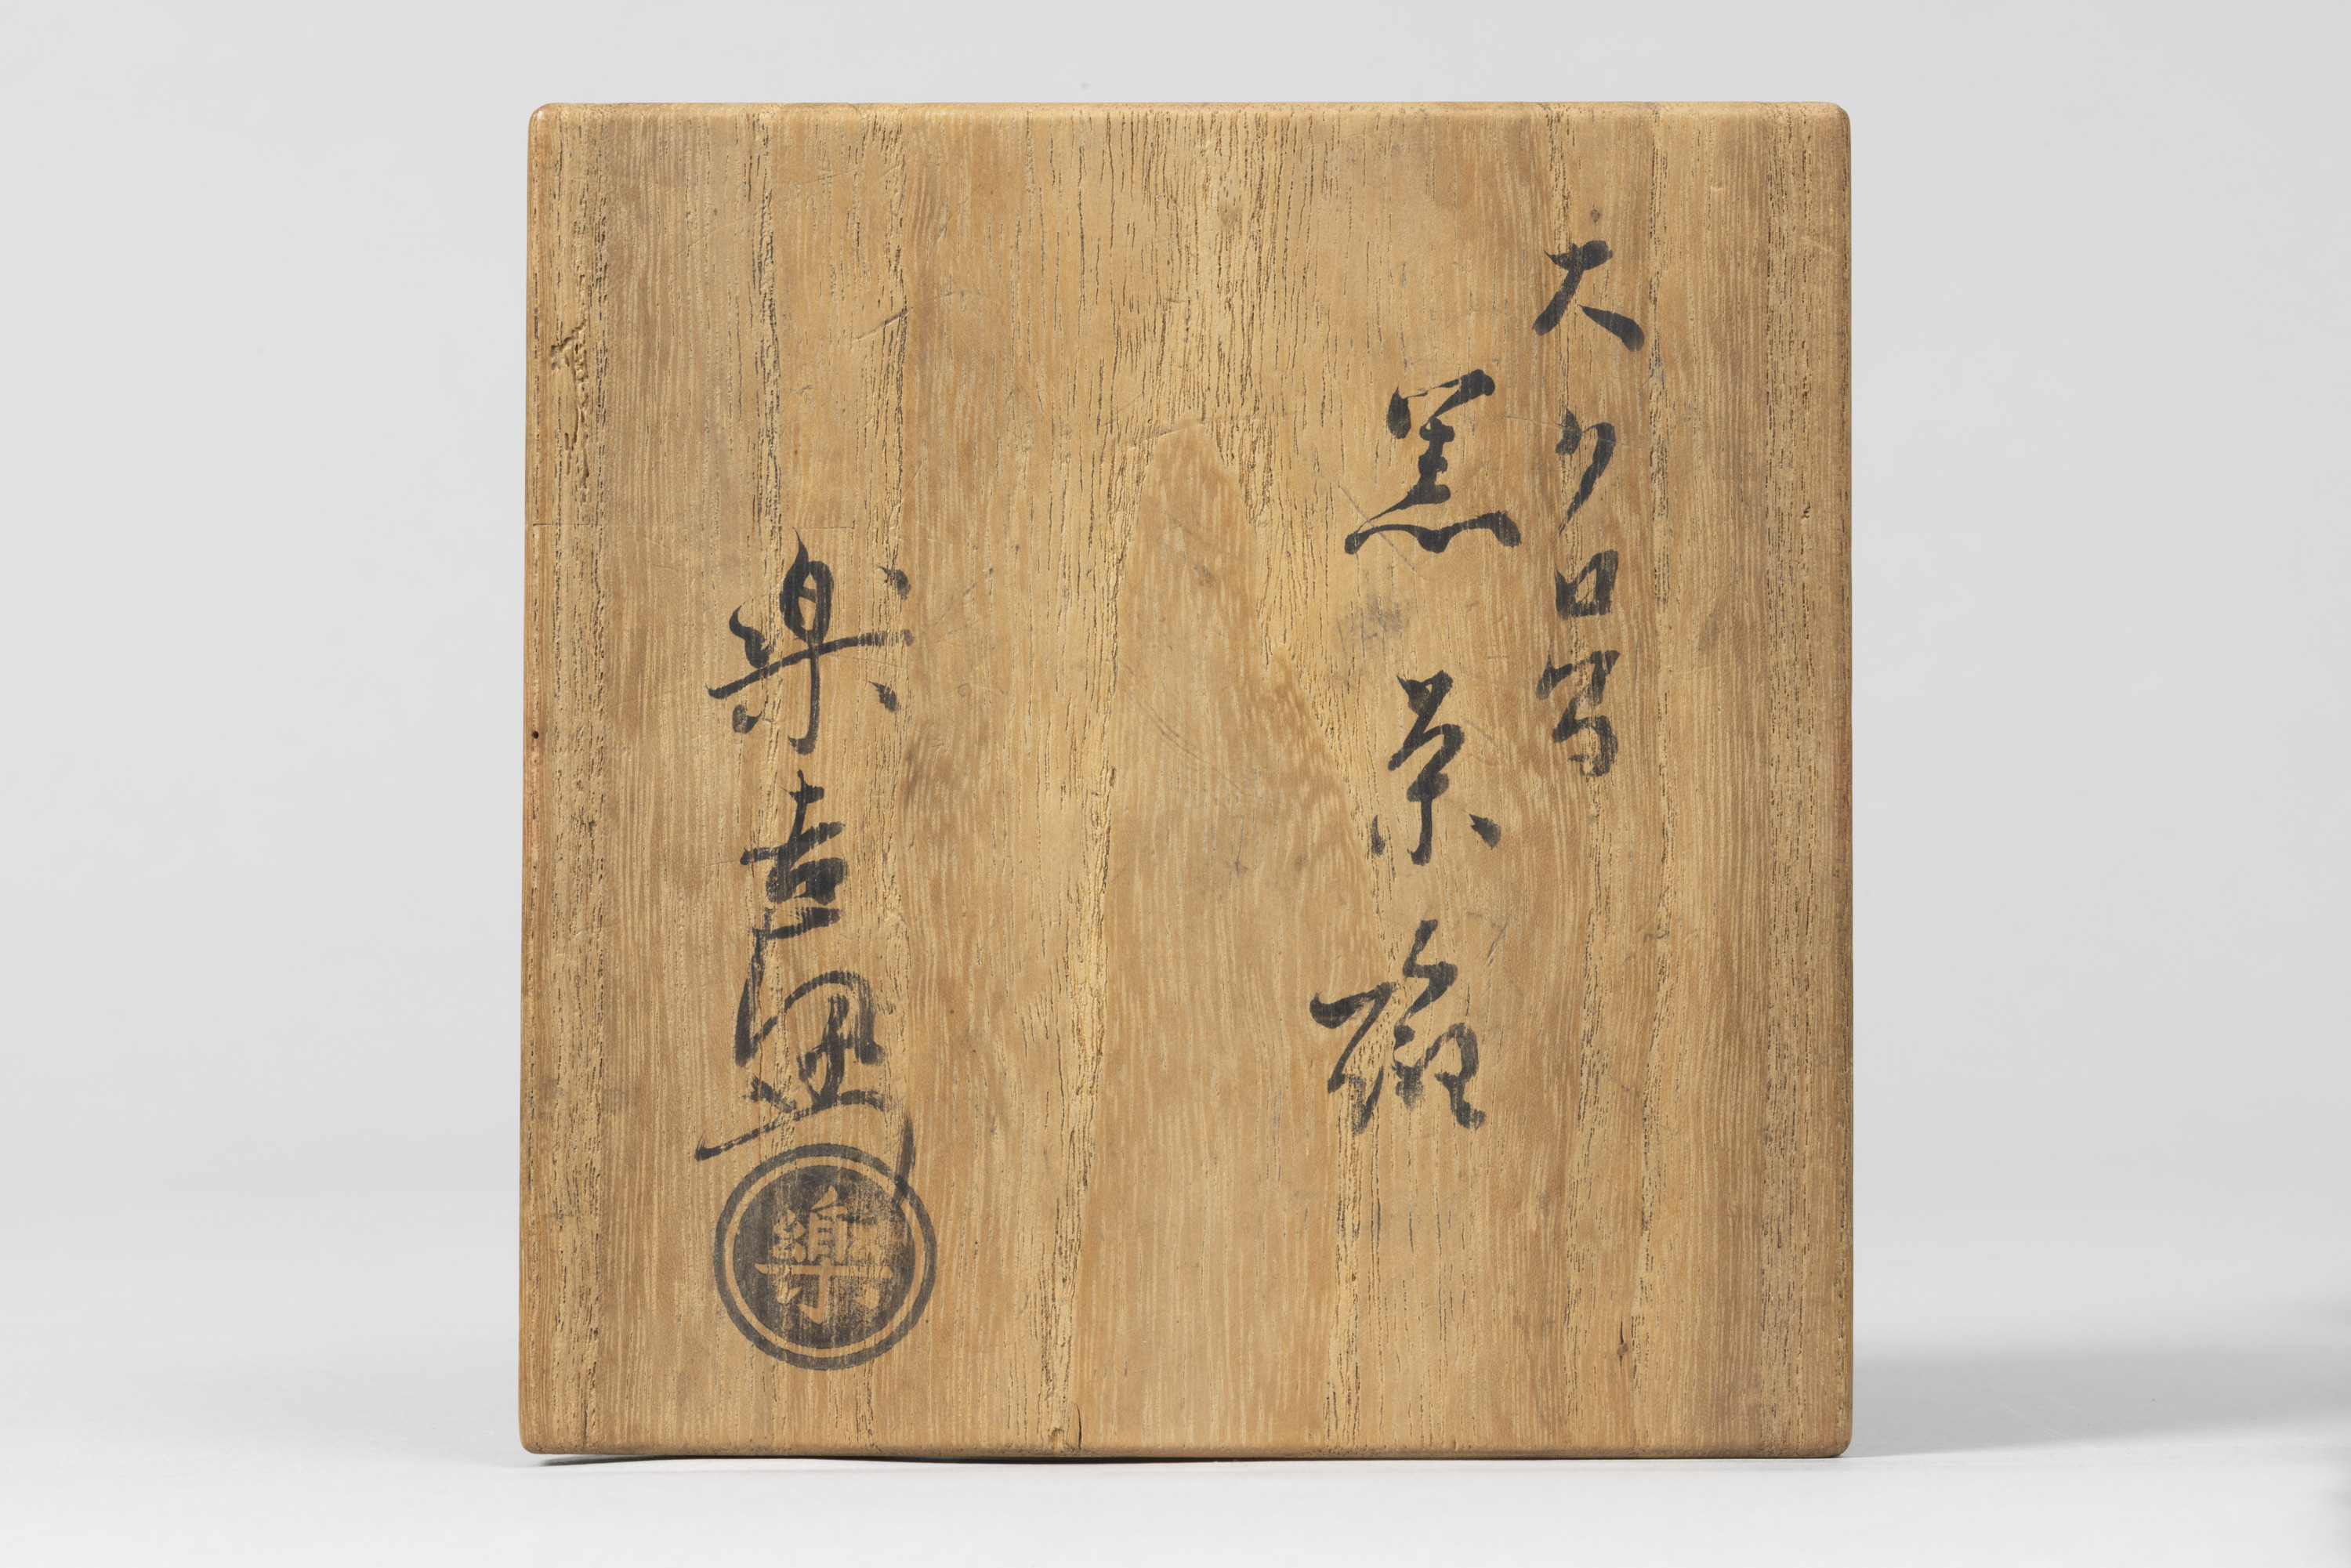 大クロ写
黒茶碗
楽吉左衛門
楽